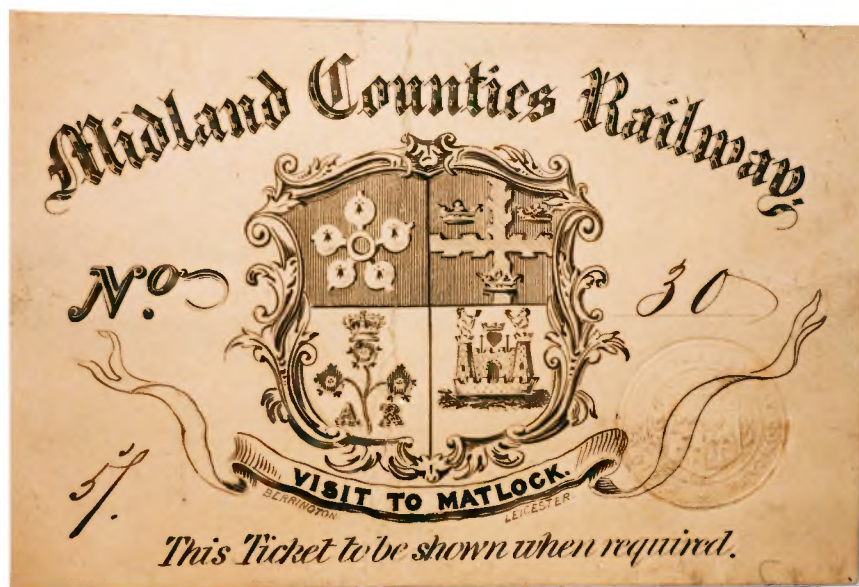 Midland Counties Railway
No. 30
VISIT TO MATLOCK.
BERRINGTON LEICESTER
This Ticket to be shown when required.